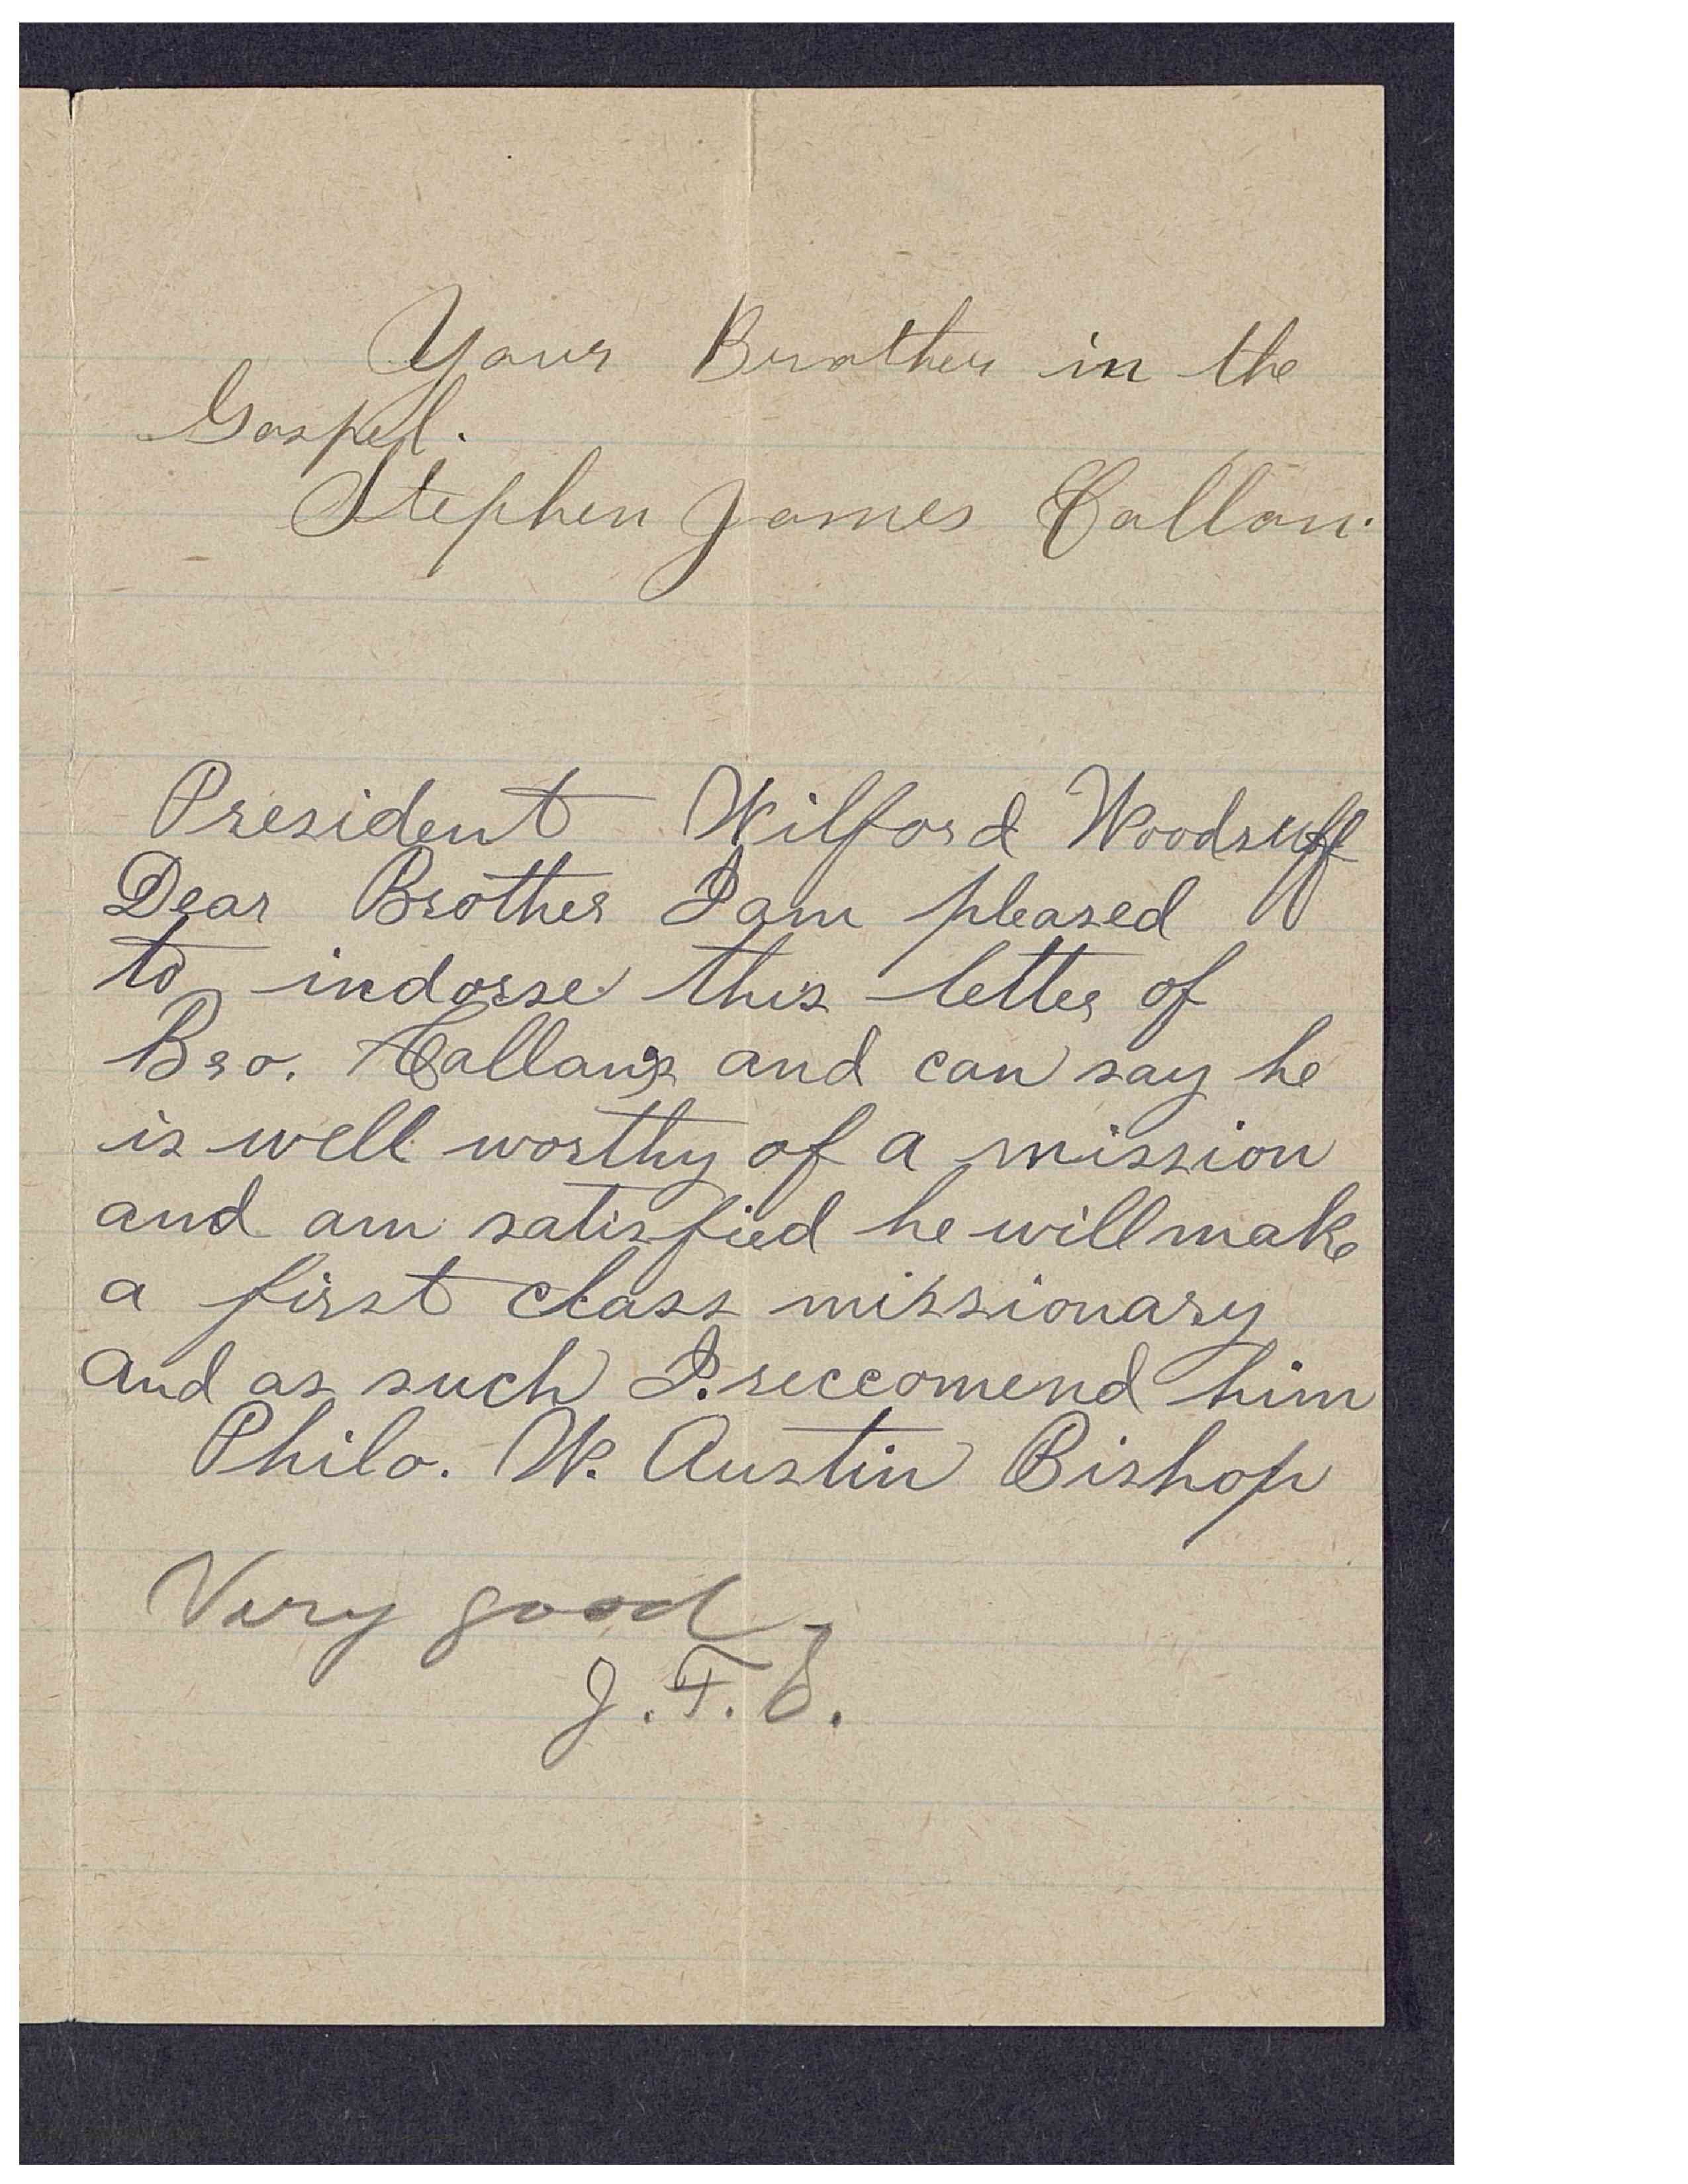 Your Brother in the
Gospel.
Stephen James Callan.
President Wilford Woodruff
Dear Brother I am pleased
to indorse this letter of
Bro. Callans and can say he
is well worthy of a mission
and am satisfied he will make
a first class missionary
and as such I. reccomend him
Philo. W. Austin Bishop
Very good
J. F. S.